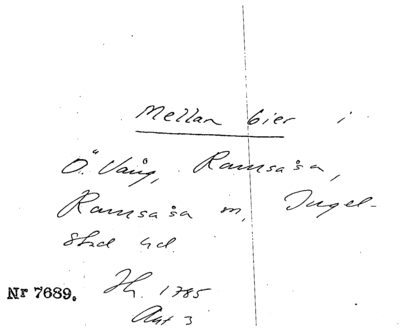 Mellan bier i
Ö. Vång, Ramsåsa,
Ramsåsa sn, Ingel-
stad hd.
Nr 7689. Jh. 1785
Akt 3